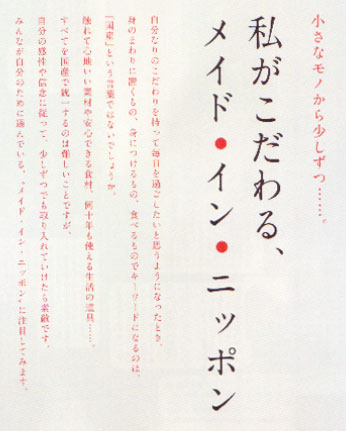 小さなモノから少しずつ……。
私がこだわる、
メイド・イン・ニッポン
自分なりのこだわりを持って毎日を過ごしたいと思うようになったとき、
身のまわりに置くもの、身につけるもの、食べるものでキーワードになるのは、
「国産」という言葉ではないでしょうか。
触れて心地いい素材や安心できる食材、何十年も使える生活の道具……。
すべてを国産で統一するのは難しいことですが、
自分の感性や信念に従って、少しずつでも取り入れていけたら素敵です。
みんなが自分のために選んでいる、“メイド・イン・ニッポン”に注目してみます。